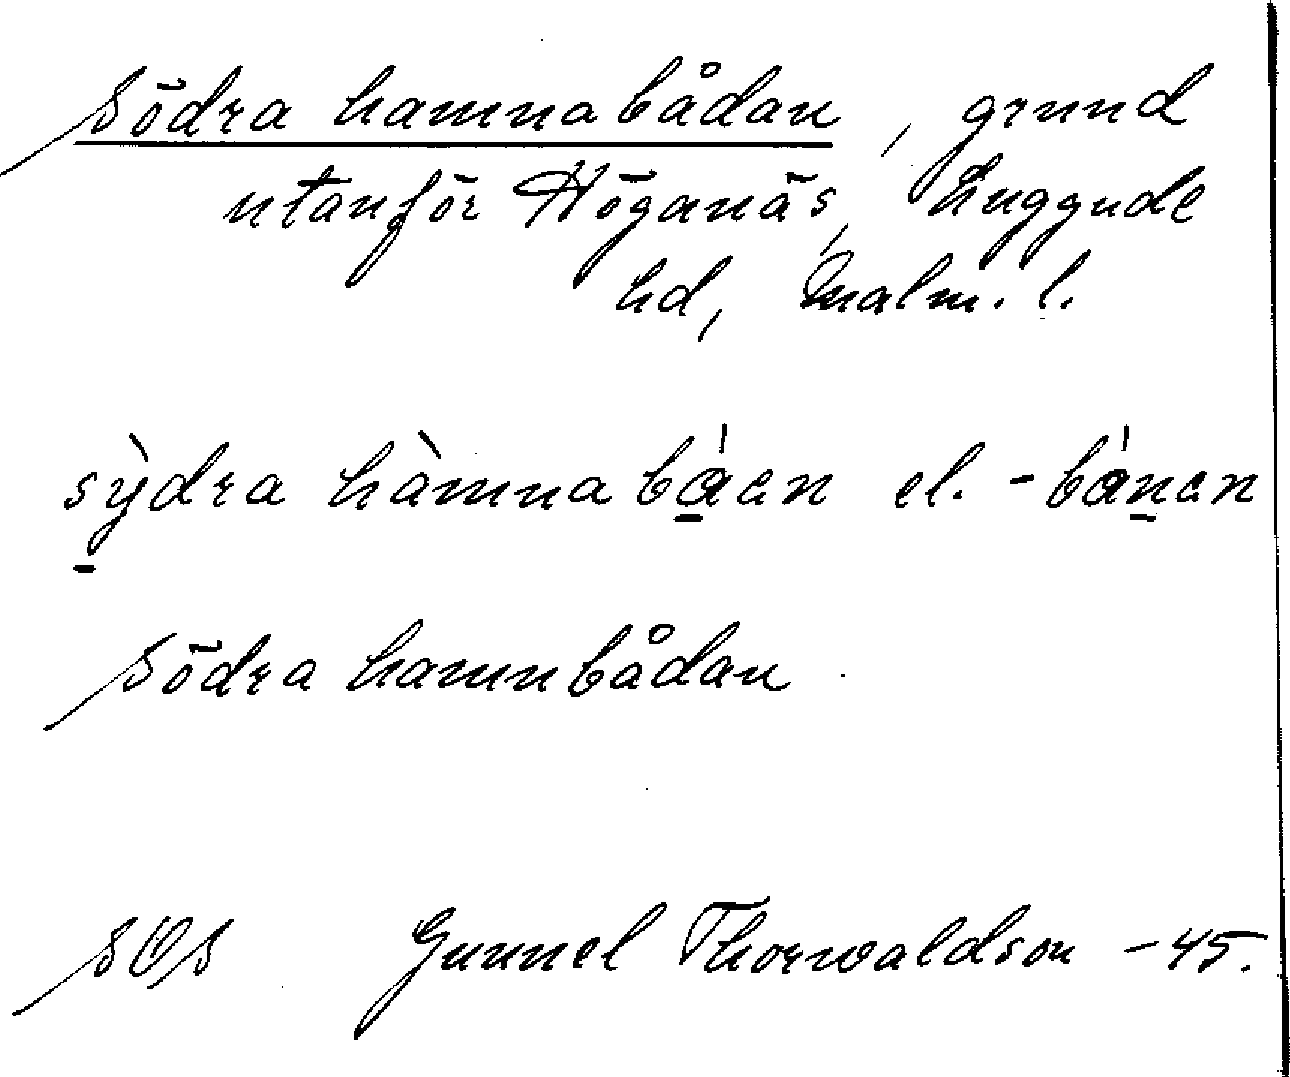 Södra hamnabådan, grund
utanför Höganäs, Luggude
hd, Malm. l.
sỳdra hàmnabáan el. -bánan
Södra hamnbådan
SOS Gunnel Thorwaldson -45.